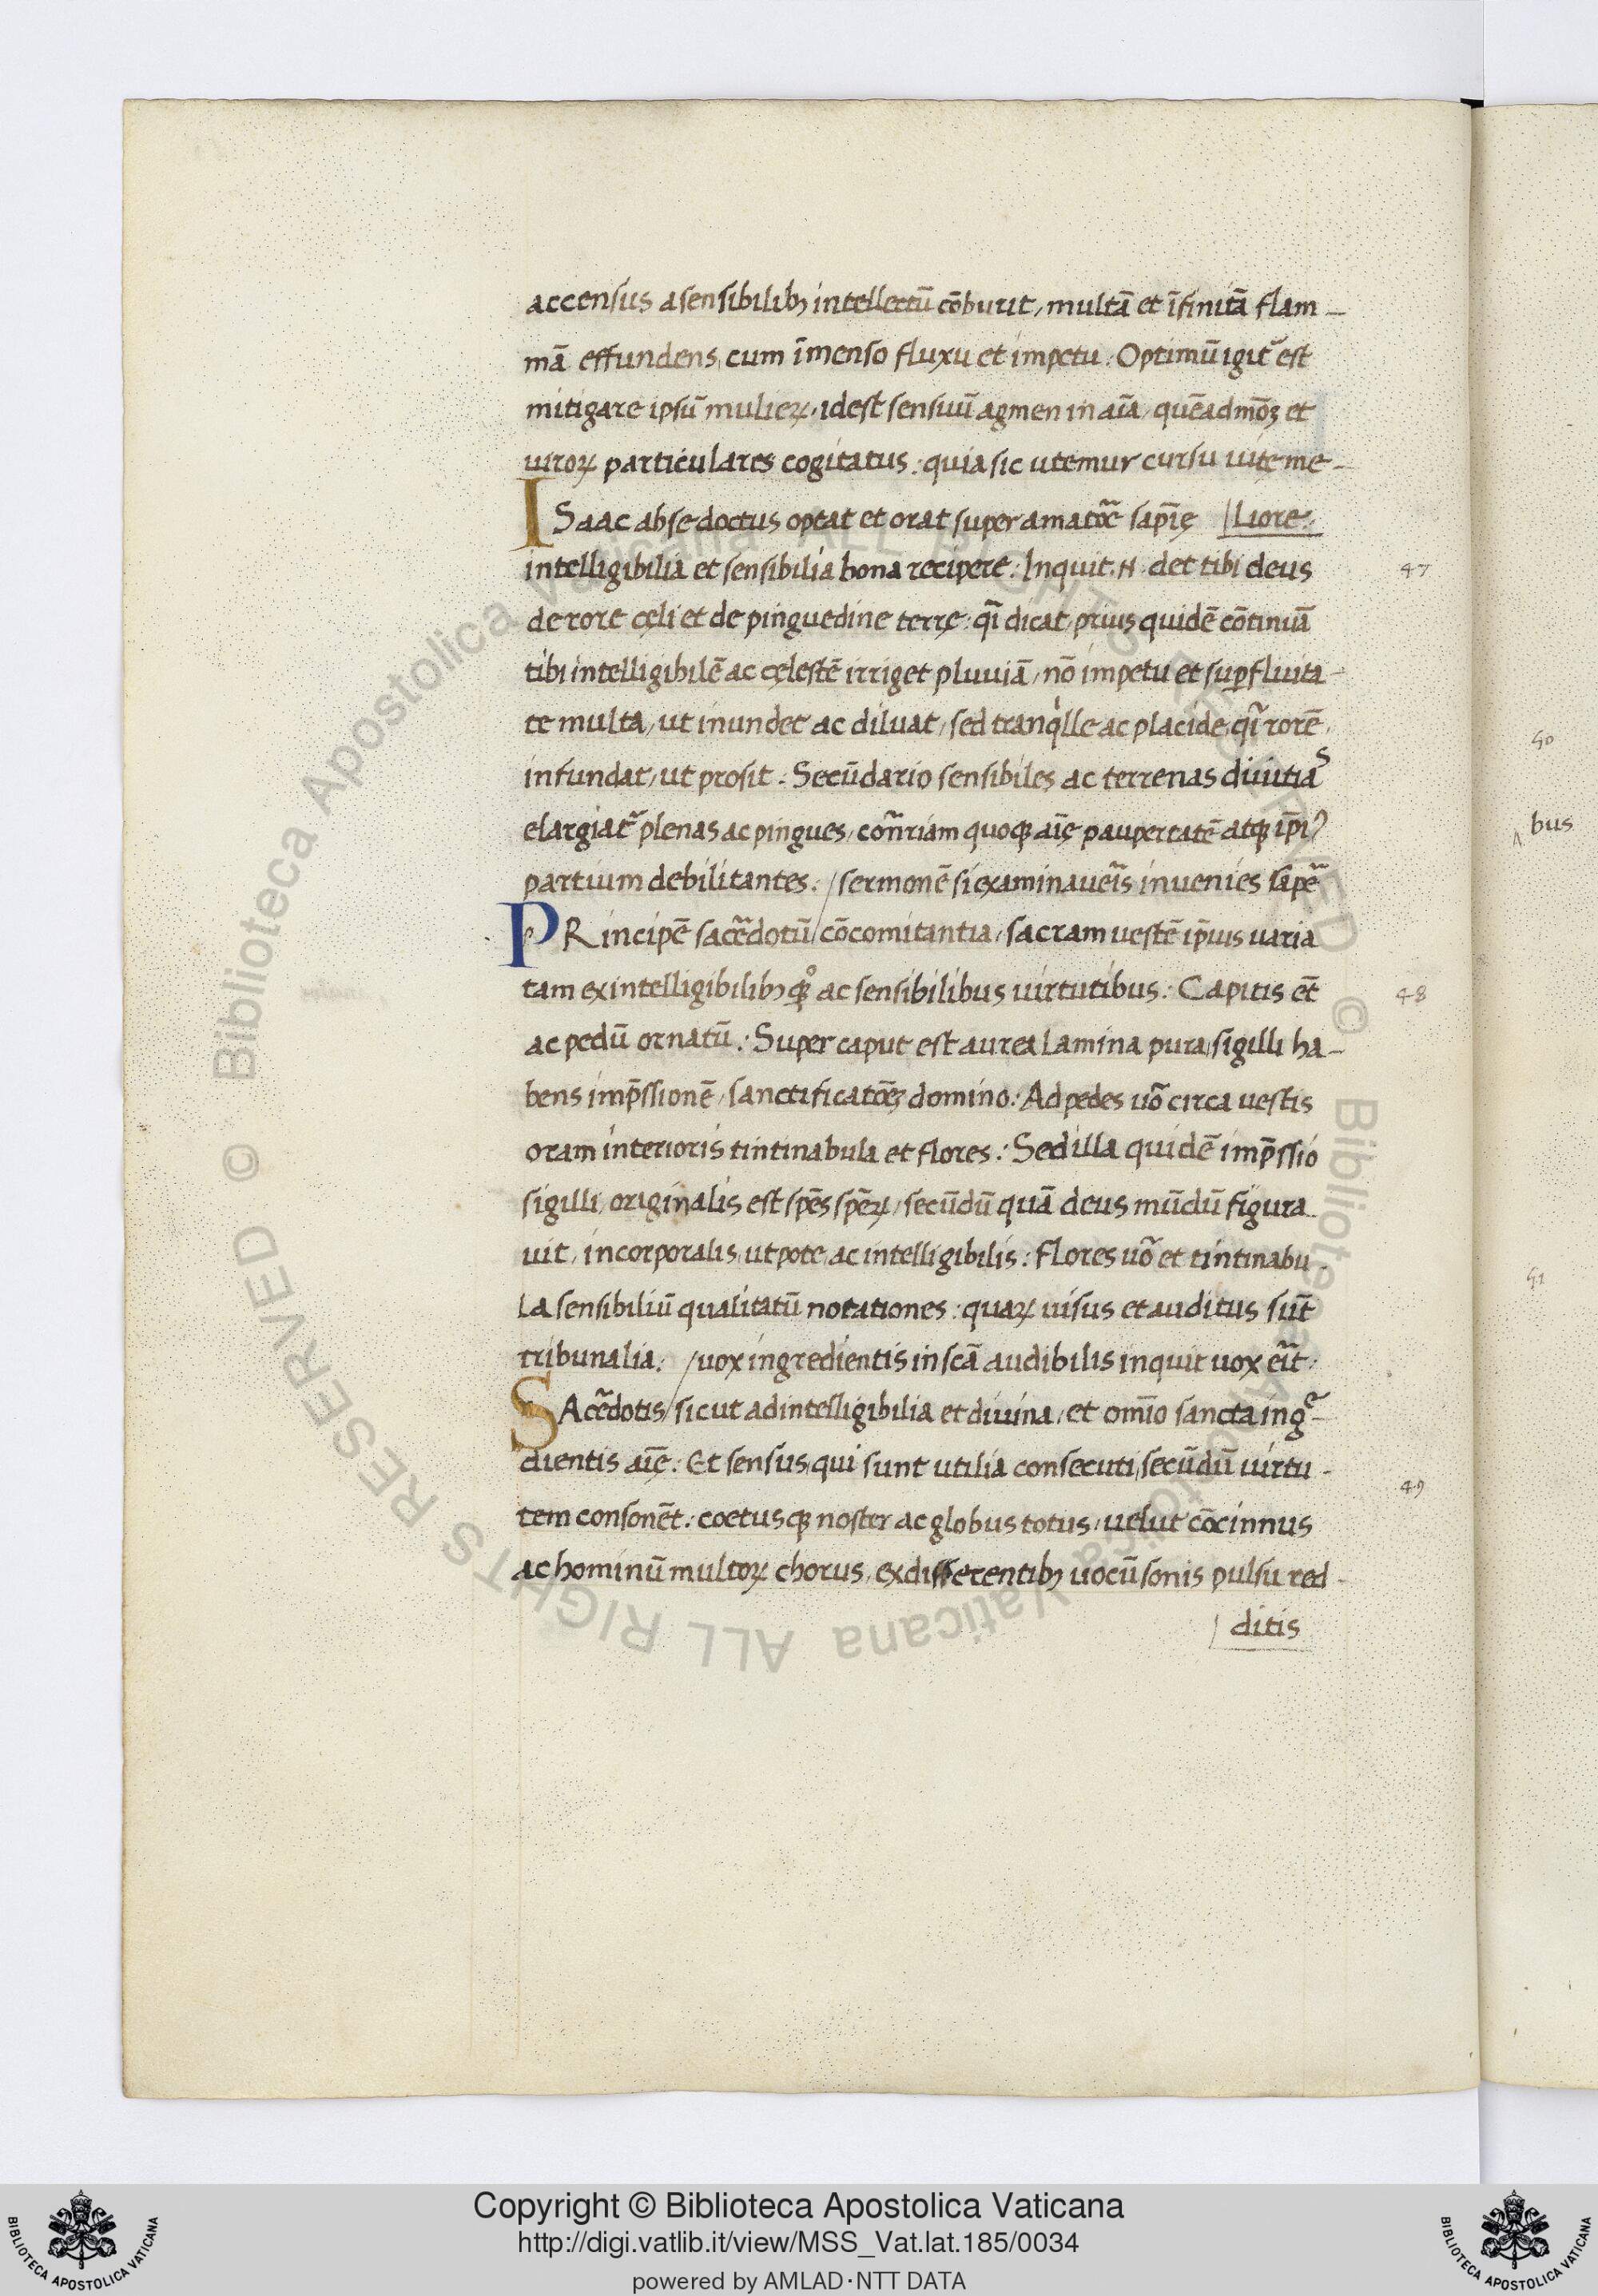 accensus a sensibilibꝫ intellectū cōburit, multā et īfinitā flam-
mā effundens, cum īmenso fluxu et impetu. Optimū igit᷑ est
mitigare ipsū mulieꝝ, idest sensuū agmen in aīa, quēadmōꝫ et
uiroꝝ particulares cogitatus: quia sic utemur cursu uitę me-
ISaac ab se doctus optat et orat super amatōe sapīę | Liore.
intelligibilia et sensibilia bona recipere. Inquit .N. det tibi deus
47
de rore cęli et de pinguedine terrę: qī dicat, prius quidē cōtinuā
tibi intelligibilē ac cęlestē irriget pluuiā, nō impetu et suꝑfluita-
te multa, ut inundet ac diluat, sed tranqⁱlle ac placide, qī rorē
infundat, ut prosit. Secūdario sensibiles ac terrenas diuitias
elargiat᷑ plenas ac pingues, cōn̄riam quoqꝫ aīę paupertatē atqꝫ ip̄iꝰ
partium debilitantes. / sermonē si examinaueīs inuenies sāpē
PRincipē sacēdotū / cōcomitantia, sacram uestē ip̄ius uaria
tam ex intelligibilibꝫ qꝫͦ ac sensibilibus uirtutibus. Capitis et̄
48
ac pedū ornatū. Super caput est aurea Lamina pura, sigilli ha-
bens imp̄ssionē, sanctificatōēꝫ domino. Ad pedes uō circa uestis
oram interioris tintinabula et flores. Sed illa quidē imp̄ssio
sigilli, originalis est spēs spēꝝ, secūdū quā deus mūdū figura-
uit, incorporalis, utpote, ac intelligibilis. Flores uō et tintinabu-
la sensibiliū qualitatū notationes: quaꝝ uisus et auditus sūt
tribunalia. / uox ingredientis in scā audibilis inquit uox eīt.
SAcēdotis / sicut ad intelligibilia et diuina, et omīo sancta ingᵉ-
dientis aīę. Et sensus, qui sunt utilia consecuti, secūdū uirtu-
49
tem consonēt. coetusqꝫ noster ac globus totus, uelut cōcinnus
ac hominū multoꝝ chorus, ex differentibꝫ uocū sonis pulsu red-
| ditis
50
bus
51
Copyright © Biblioteca Apostolica Vaticana
http://digi.vatlib.it/view/MSS_Vat.lat.185/0034
powered by AMLAD·NTT DATA
BIBLIOTECA APOSTOLICA VATICANA
BIBLIOTECA APOSTOLICA VATICANA
© Biblioteca Apostolica Vaticana ALL RIGHTS RESERVED © Biblioteca Apostolica Vaticana ALL RIGHTS RESERVED